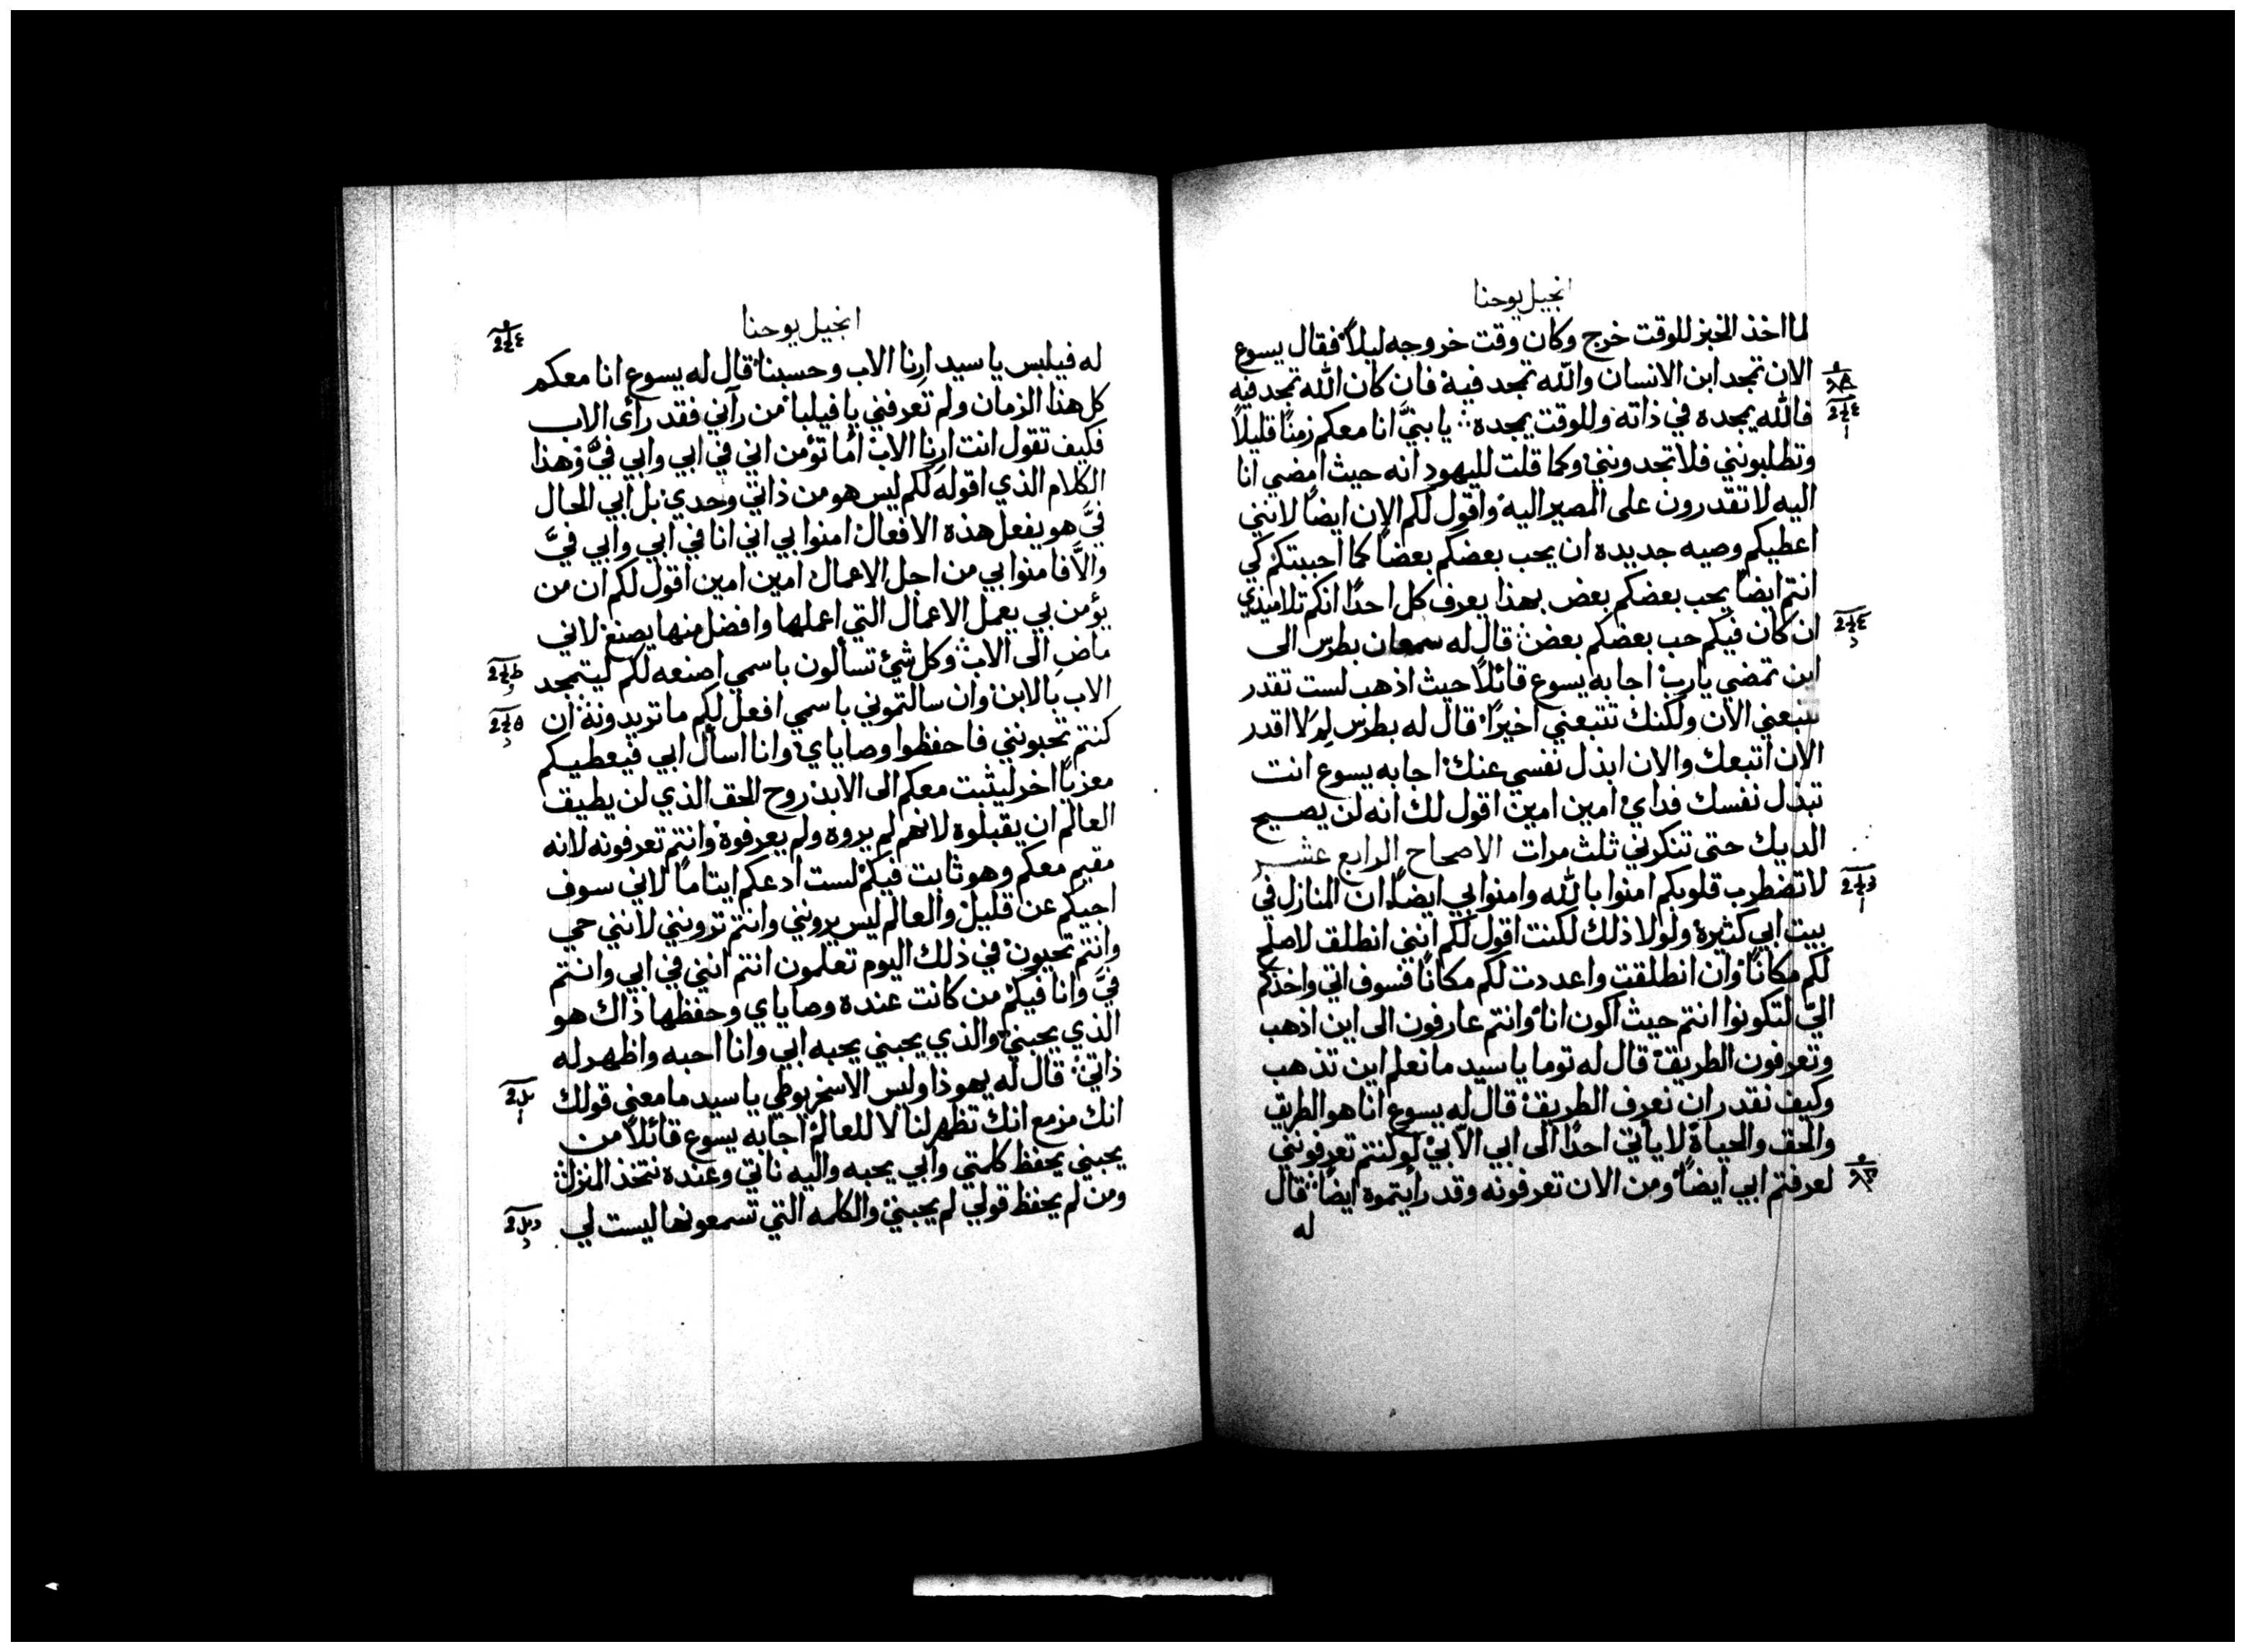 انجيل يوحنا
لما اخذ الخبز للوقت خرج وكان وقت خروجه ليلاً فقال يسوع
الان تمجد ابن الانسان والله تمجد فيه فان كان الله تمجد فيه
فالله يمجده في ذاته وللوقت يمجده يا بنيَّ انا معكم زمنًا قليلاً
وتطلبونني فلا تجدونني وكما قلت لليهود انه حيث امضي انا
اليه لا تقدرون على المصير اليه واقول لكم الان ايضًا لانني
اعطيكم وصيه جديده ان يحب بعضكم بعضًا كما احببتكم كي
انتم ايضًا يحب بعضكم بعض بهذا يعرف كل احدًا انكم تلاميذي
ان كان فيكم حب بعضكم بعض قال له سمعان بطرس الى
اين تمضي يا رب اجابه يسوع قائلاً حيث اذهب لست تقدر
تتبعني الان ولكنك تتبعني اخيرًا قال له بطرس لِمَ لا اقدر
الان اتبعك والان ابذل نفسي عنك اجابه يسوع انت
تبذل نفسك فداي امين امين اقول لك انه لن يصيح
الديك حتى تنكرني ثلث مرات الاصحاح الرابع عشر
لا تضطرب قلوبكم امنوا بالله وامنوا بي ايضًا ان المنازل في
بيت ابي كثيره ولولا ذلك لكنت اقول لكم انني انطلق لاصلح
لكم مكانًا وان انطلقت واعددت لكم مكانًا فسوف اتي واخذكم
اليّ لتكونوا انتم حيث اكون انا وانتم عارفون الى اين اذهب
وتعرفون الطريق قال له توما يا سيد ما نعلم اين تذهب
وكيف نقدر ان نعرف الطريق قال له يسوع انا هو الطريق
والحق والحياة لا يأتي احدًا الى ابي الاّ بي لو كنتم تعرفونني
لعرفتم ابي ايضًا ومن الان تعرفونه وقد رأيتموه ايضًا قال
له
انجيل يوحنا
له فيلبس يا سيد ارِنا الاب وحسبنا قال له يسوع انا معكم
كل هذا الزمان ولم تعرفني يا فيلبا من رآني فقد رأى الاب
فكيف تقول انت ارِنا الاب اما تؤمن اني في ابي وابي فيَّ وهذا
الكلام الذي اقوله لكم ليس هو من ذاتي وحدي بل ابي الحال
فيَّ هو يفعل هذه الافعال امنوا بي اني انا في ابي وابي فيَّ
والاَّ فامنوا بي من اجل الاعمال امين امين اقول لكم ان من
يؤمن بي يعمل الاعمال التي اعملها وافضل منها يصنع لاني
ماضٍ الى الاب وكل شئ تسألون باسمي اصنعه لكم ليتمجد
الاب بالابن وان سالتموني باسمي افعل لكم ما تريدونه ان
كنتم تحبونني فاحفظوا وصاياي وانا اسأل ابي فيعطيكم
معزيًا اخر ليثبت معكم الى الابد روح الحق الذي لن يطيق
العالم ان يقبلوه لانهم لم يروه ولم يعرفوه وانتم تعرفونه لانه
مقيم معكم وهو ثابت فيكم لست ادعكم ايتامًا لاني سوف
اجيكم عن قليل والعالم ليس يرونني وانتم ترونني لانني حي
وانتم تحيون في ذلك اليوم تعلمون انتم انني في ابي وانتم
فيَّ وانا فيكم من كانت عنده وصاياي وحفظها ذاك هو
الذي يحبني والذي يحبني يحبه ابي وانا احبه واظهر له
ذاتي قال له يهوذا وليس الاسخريوطي يا سيد ما معنى قولك
انك مزمع انك تظهر لنا لا للعالم اجابه يسوع قائلاً من
يحبني يحفظ كلمتي وابي يحبه واليه ناتي وعنده نتخذ المنزل
ومن لم يحفظ قولي لم يحبني والكلمه التي تسمعونها ليست لي